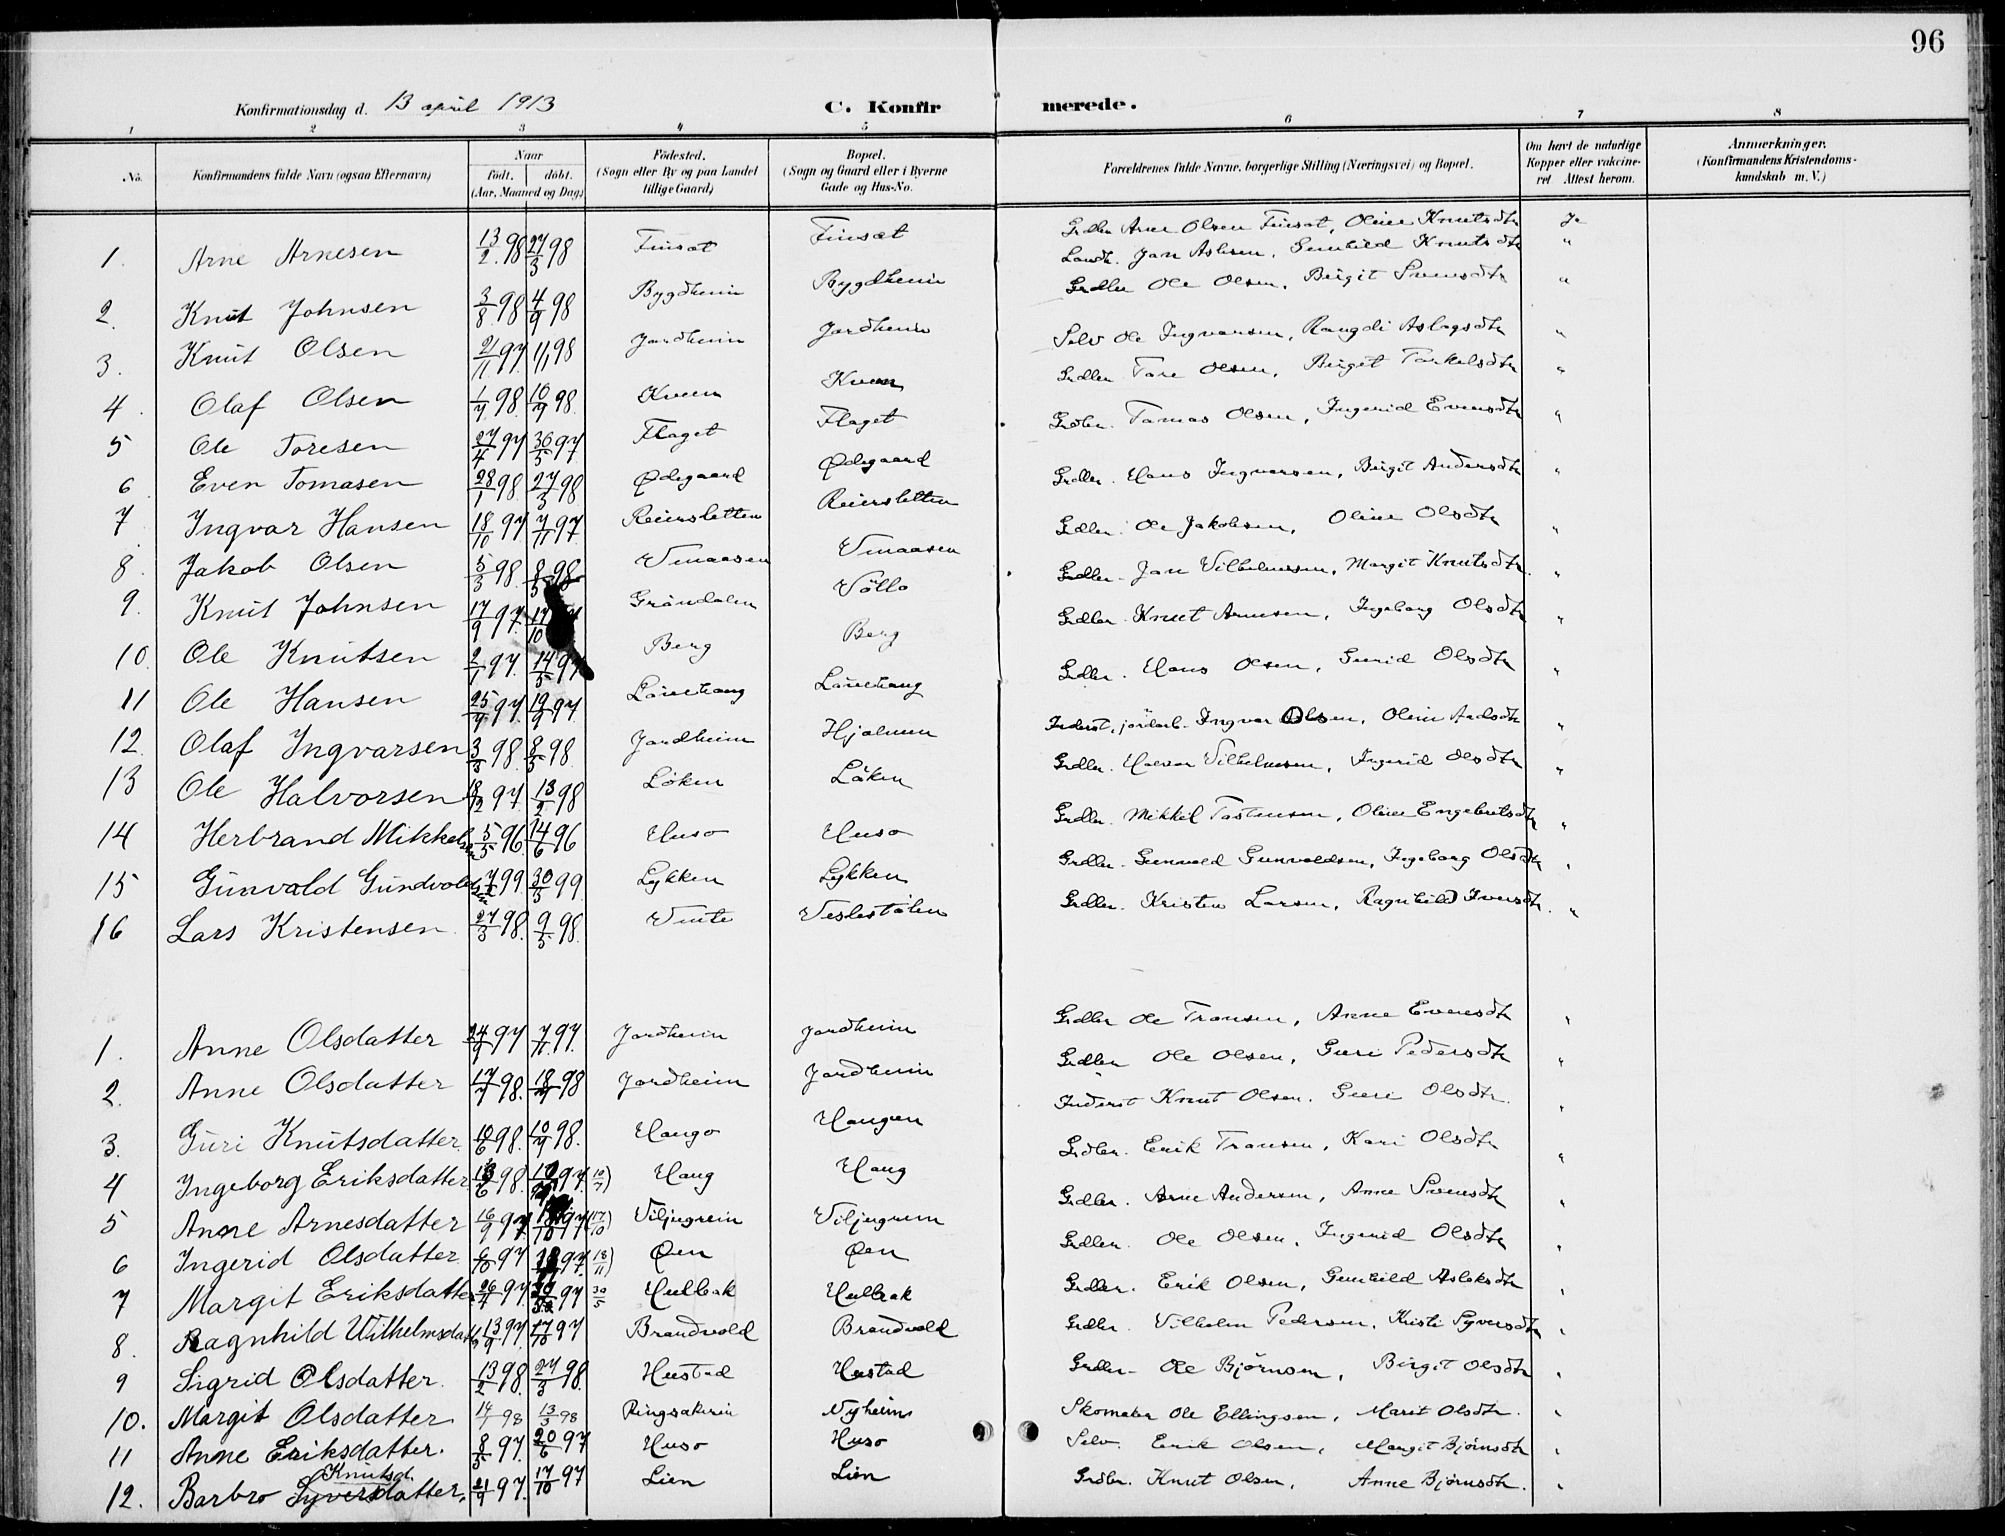 96
Konfirmationsdag d. 13 april 1913 C. Konfirmerede.
1 2 3 4 5 6 7 8
No. Konfirmandens fulde Navn (ogsaa Efternavn) Naar født. døbt. (Aar, Maaned og Dag) Fødested. (Sogn eller By og paa Landet tillige Gaard) Bopæl. (Sogn og Gaard eller i Byerne Gade og Hus-No. Forældrenes fulde Navne, borgerlige Stilling (Næringsvei) og Bopæl. Om havt de naturlige Kopper eller vakcineret Attest herom. Anmærkninger. (Konfirmandens Kristendomskundskab m. V.)
1. Arne Arnesen 13/2 98 27/3 98 Finset Finset Grdbr. Arne Olsen Finset, Oline Knutsdtr Ja
2. Knut Johnsen 3/8 98 4/9 98 Bygdheim Bygdheim Landh. Jon Aslesen, Gunhild Knutsdtr "
3. Knut Olsen 21/11 97 1/1 98 Jordheim Jordheim Grdbr Ole Olsen, Birgit Svensdtr "
4. Olaf Olsen 1/7 98 10/9 98 Kveen Kveen Selv Ole Ingvarsen, Rangdi Aslagsdtr "
5 Ole Toresen 27/4 97 30/5 97 Flaget Flaget Grdbr. Tore Olsen, Birget Torkelsdtr "
6 Even Tomasen 28/1 98 27/3 98 Ødegaard Ødegaard Grdbr. Tomas Olsen, Ingerid Evensdtr "
7 Ingvar Hansen 18/10 97 7/11 97 Reiersletten Reiersletten Grdbr. Hans Ingvarsen, Birgit Andersdtr "
8. Jakob Olsen 5/3 98 8/5 98 Vinaasen Vinaasen Grdbr. Ole Jakobsen, Oline Olsdtr "
9. Knut Johnsen 17/9 97 17/10 Gröndalen Völlo Grdbr. Jon Vilhelmsen, Margit Knutsdtr. "
10. Ole Knutsen 2/1 97. 14/5 97 Berg Berg Grdbr. Knut Arnesen, Ingeborg Olsdtr "
11 Ole Hansen 25/7 97. 19/9 97 Lönehaug Lönehaug Grdbr. Hans Olsen, Gunid Olsdtr "
12. Olaf Ingvarsen 3/3 98. 8/5 98. Jordheim Hjalmen Inderst, jordarb. Ingvar Olsen, Olein Aadsdtr "
13 Ole Halvorsen 18/12 97. 13/2 98 Løken Løken Grdbr. Halvor Vilhelmsen, Ingerid Olsdtr "
14 Herbrand Mikkelsen 5/5 96. 14/6 96 Huso Huso Grdbr. Mikkel Tostensen, Oline Engebretsdtr "
15 Gunvald Gundvoldsen 7/4 99. 30/5 99 Lykken Lykken Grdbr. Gunvald Gunvaldsen, Ingeborg Olsdtr "
16 Lars Kristensen 27/3 98. 9/5 98. Veslestølen Grdbr. Kristen Larsen, Ragnhild Iversdtr. "
1. Anne Olsdatter 24/9 97 7/11 97. Jordheim Jordheim Grdbr Ole Tronsen, Anne Evensdtr "
2. Anne Olsdatter 17/7 98. 18/9 98 Jordheim Jordheim Grdbr Ole Olsen, Guri Pedersdtr "
3. Guri Knutsdatter. 10/6 98. 10/9 98. Haugo Haugen Inderst Knut Olsen, Guri Olsdtr. "
4 Ingeborg Eriksdatter 98. 97. (10/7) Haug Haug Grdbr. Erik Tronsen, Kari Olsdtr "
5 Anne Arnesdatter 16/9 97. 97 (17/10) Viljugrein Viljugrein Grdbr. Arne Andersen, Anne Svensdtr "
6 Ingerid Olsdatter. 6/10 97 97. (18/11) Øen Øen Grdbr. Ole Olsen, Ingerid Olsdtr "
7 Margit Eriksdatter 26/4 97. 97 30/5 Hulbak Hulbak Grdbr. Erik Olsen, Gunhild Aslaksdtr "
8. Ragnhild Wilhelmsdatter 13/9 97. 17/10 97 Brandvold Brandvold Grdbr. Vilhelm Pedersen, Kristi Syversdtr "
9 Sigrid Olsdatter. 13/2 98. 27/3 98. Hustad Hustad Grdbr. Ole Bjørnsen, Birgit Olsdtr "
10. Margit Olsdatter 14/1 98 13/3 98 Ringsakerin Nyheim Skomaker Ole Ellingsen, Marit Olsdtr. "
11 Anne Eriksdatter. 8/5 97. 20/6 97 Huso Huso Selv. Erik Olsen, Margit Bjørnsdtr "
12. Barbro Syversdatter, Knutsd. 21/9 97. 17/10 97 Lien Lien Grdbr. Knut Olsen, Anne Bjørnsdtr. "